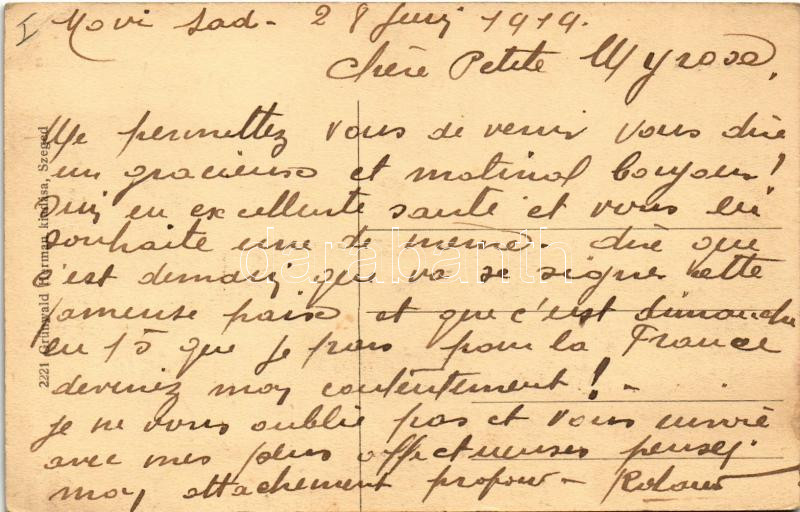 I
Novi Sad - 28 Juin 1919.
Chère Petite Myrose,
Me permettez vous de venir vous dire
un gracieux et matinal bonjour!
Suis en excellente santé et vous en
souhaite une de même. dire que
c'est demain que va se signer cette
fameuse paix et que c'est dimanche
en 15 que je pars pour la France
devinez mon contentement! -
je ne vous oublie pas et vous envoie
avec mes plus affectueuses pensées
mon attachement profond - Roland
2221 Grünwald Herman kiadása, Szeged
darabanth